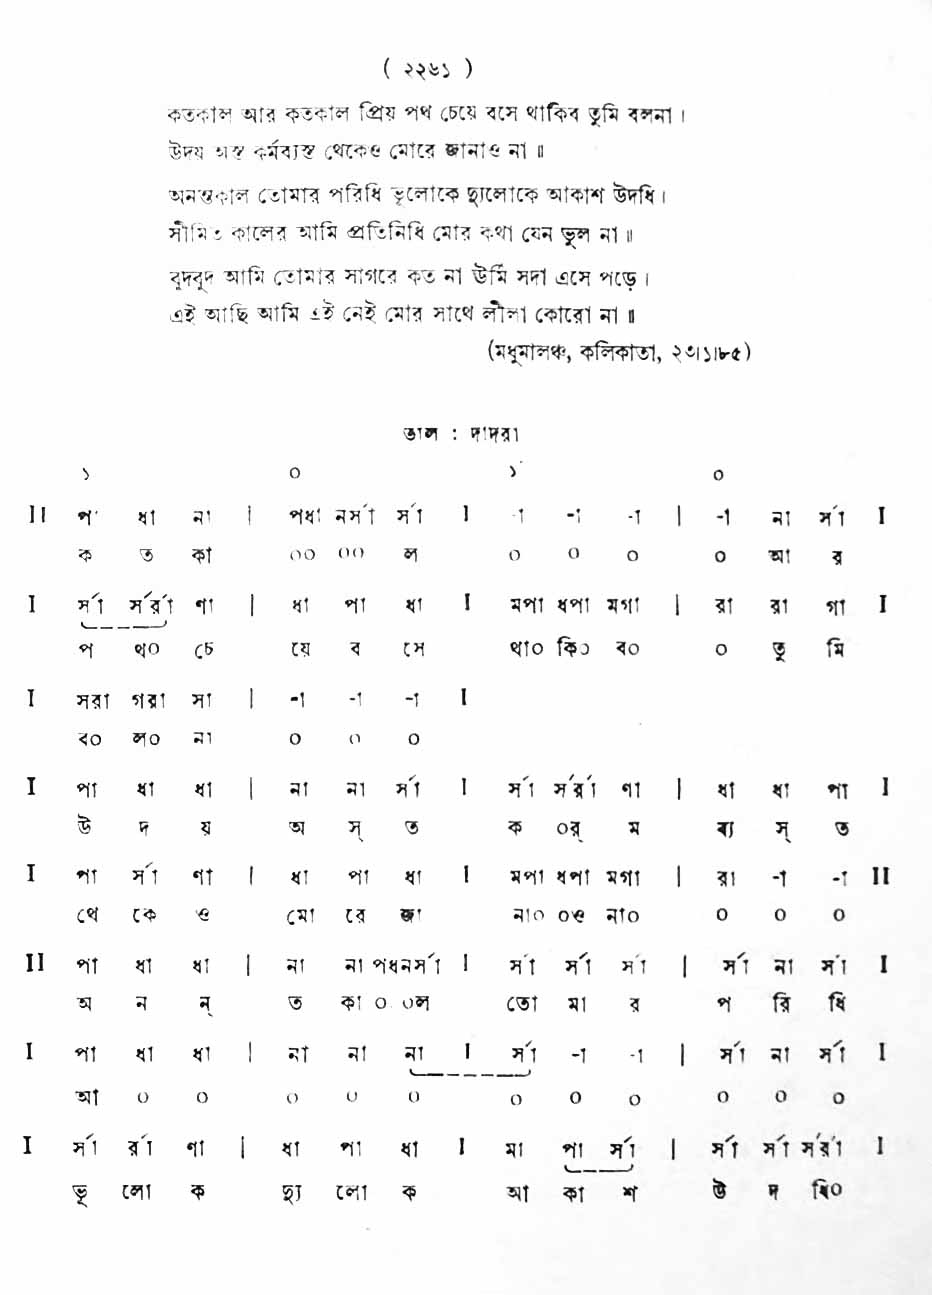 ( ২২৬১ )
কতকাল আর কতকাল প্রিয় পথ চেয়ে বসে থাকিব তুমি বলনা ।
উদয় অস্ত কর্মব্যস্ত থেকেও মোরে জানাও না ॥
অনন্তকাল তোমার পরিধি ভূলোকে দ্যুলোকে আকাশ উদধি ।
সীমিত কালের আমি প্রতিনিধি মোর কথা যেন ভুল না ॥
বুদবুদ আমি তোমার সাগরে কত না ঊর্মি সদা এসে পড়ে ।
এই আছি আমি এই নেই মোর সাথে লীলা কোরো না ॥
(মধুমালঞ্চ, কলিকাতা, ২৩।১।৮৫)
তাল : দাদরা
১ ০ ১ ০
II পা ধা না | পধা নর্সা র্সা I -া -া -া | -া না র্সা I
ক ত কা ০০ ০০ ল ০ ০ ০ ০ আ র
I র্সা র্সর্রা ণা | ধা পা ধা I মপা ধপা মগা | রা রা গা I
প থ০ চে য়ে ব সে থা০ কি০ ব০ ০ তু মি
I সরা গরা সা | -া -া -া I
ব০ ল০ না ০ ০ ০
I পা ধা ধা | না না র্সা I র্সা র্সর্রা ণা | ধা ধা পা I
উ দ য় অ স্ ত ক ০র্ ম ব্য স্ ত
I পা র্সা ণা | ধা পা ধা I মপা ধপা মগা | রা -া -া II
থে কে ও মো রে জা না০ ০ও না০ ০ ০ ০
II পা ধা ধা | না না পধনর্সা I র্সা র্সা র্সা | র্সা না র্সা I
অ ন ন্ ত কা ০ ০ল তো মা র প রি ধি
I পা ধা ধা | না না না I র্সা -া -া | র্সা না র্সা I
আ ০ ০ ০ ০ ০ ০ ০ ০ ০ ০ ০
I র্সা র্রা ণা | ধা পা ধা I মা পা র্সা | র্সা র্সা র্সর্রা I
ভূ লো ক দ্যু লো ক আ কা শ উ দ ধি০